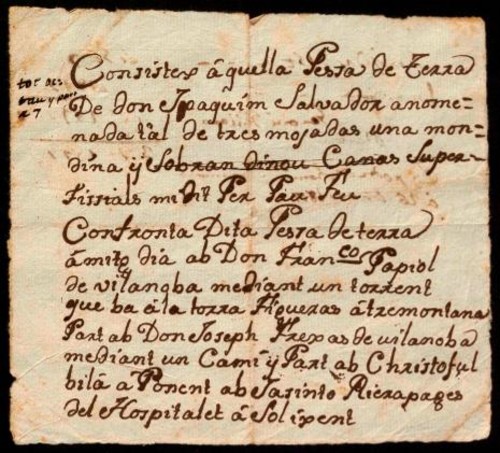 Consistex â quella Pessa de terra
De don Joaquim Salvador anome-
nada tal de tres mojadas una mon-
dina ÿ sobran dinou Canas super-
fissials midit Per Pau Feu
Confronta Dita Pessa de terra
â mitg dia ab Don Franco Papiol
de vilanoba mediant un torrent
que ba â la torra Figueras â tremontana
Part ab Don Joseph Frexas de vilanoba
mediant un Cami ÿ Part ab Christoful
bilâ â Ponent ab Jasinto Rierapages
del Hospitalet â Sol ixent